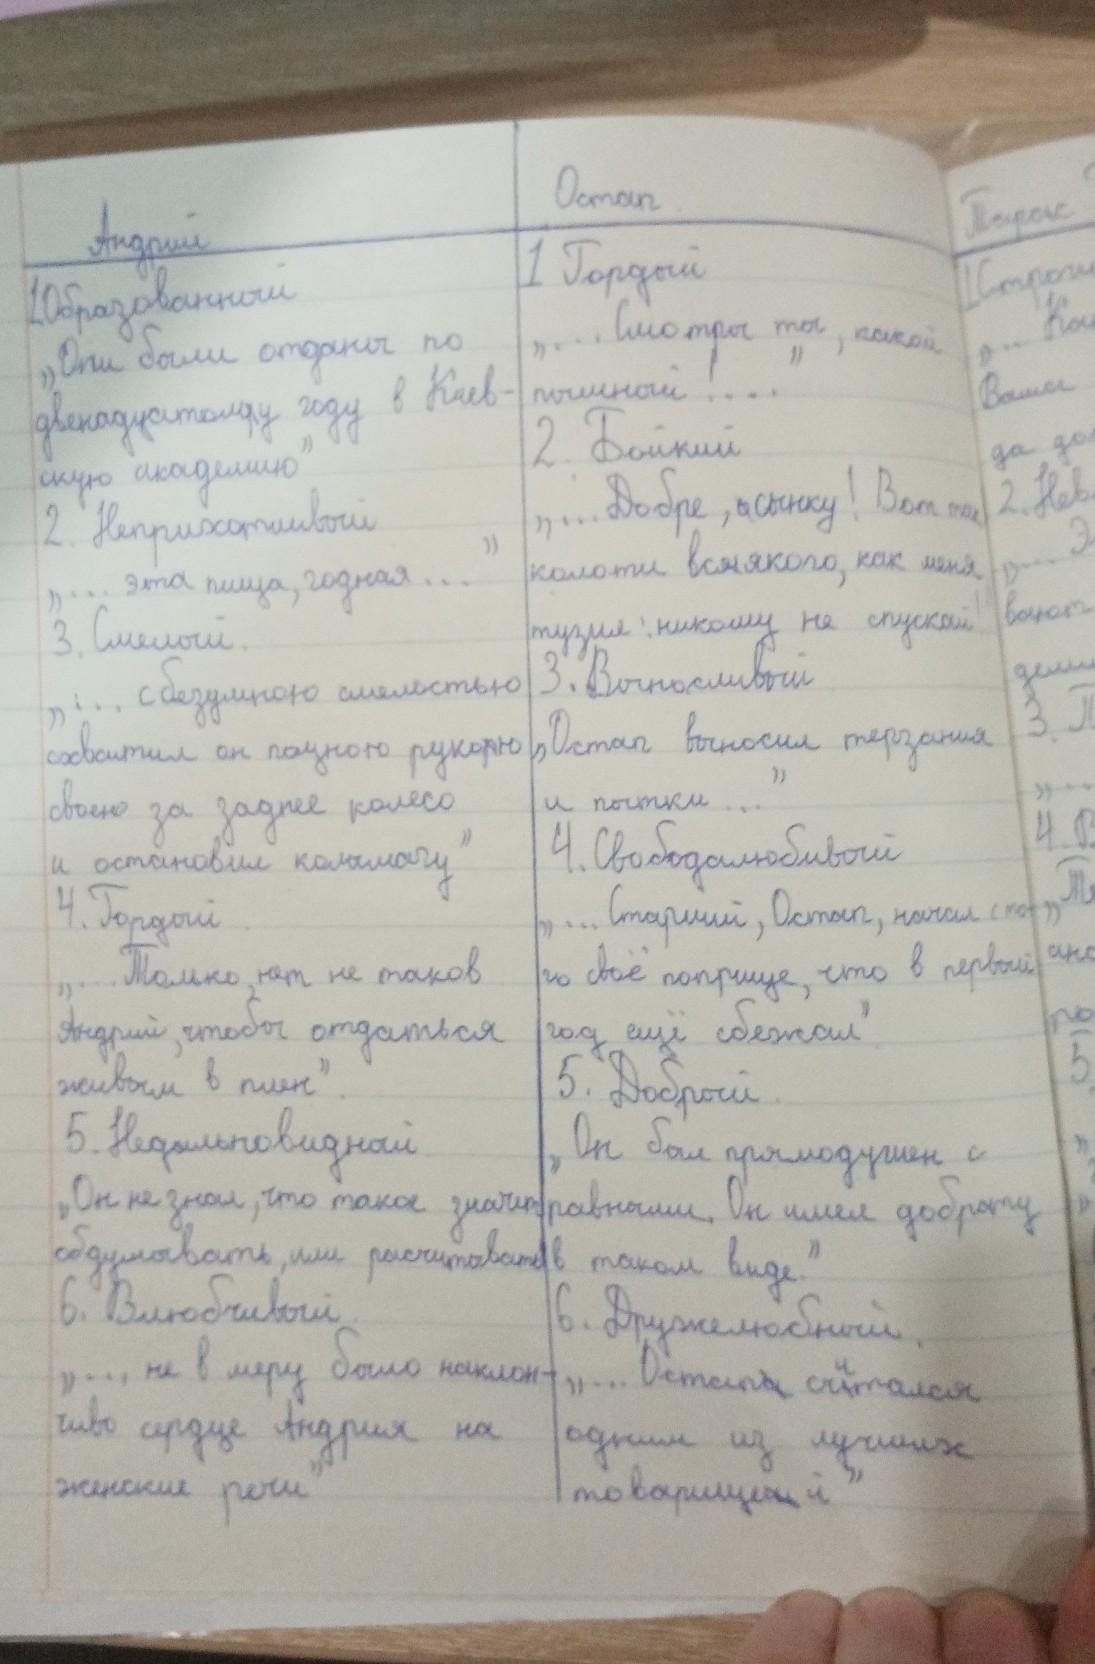 Андрий
1 Образованный
„Они были отданы по
двенадцатому году в Киев-
скую академию”
2. Неприхотливый
„... эта пища, годная...”
3. Смелый.
„... с безумною смелостью
схватил он мощною рукою
своею за заднее колесо
и остановил колымагу”
4. Гордый.
„...Только нет не таков
Андрий, чтобы отдаться
живым в плен”.
5. Недальновидный
„Он не знал, что такое значит
обдумывать, или расчитывать
6. Влюбчивый.
„... не в меру было наклон-
чиво сердце Андрия на
женские речи”
Остап
1 Гордый
„... Смотри ты, какой
пышный!....”
2. Бойкий
„... Добре, сынку! Вот так
колоти всякого, как меня
тузил: никому не спускай!”
3. Выносливый
„Остап выносил терзания
и пытки...”
4. Свободалюбивый
„... Старший, Остап, начал с то-
го своё поприще, что в первый
год ещё сбежал”
5. Добрый.
„Он был прямодушен с
равными. Он имел доброту
в таком виде.”
6. Дружелюбный.
„... Остап считался
одним из лучших
товарищей”
Тарас
1
„..
Ваша
да
2.
„....
3.
„....
4.
5.